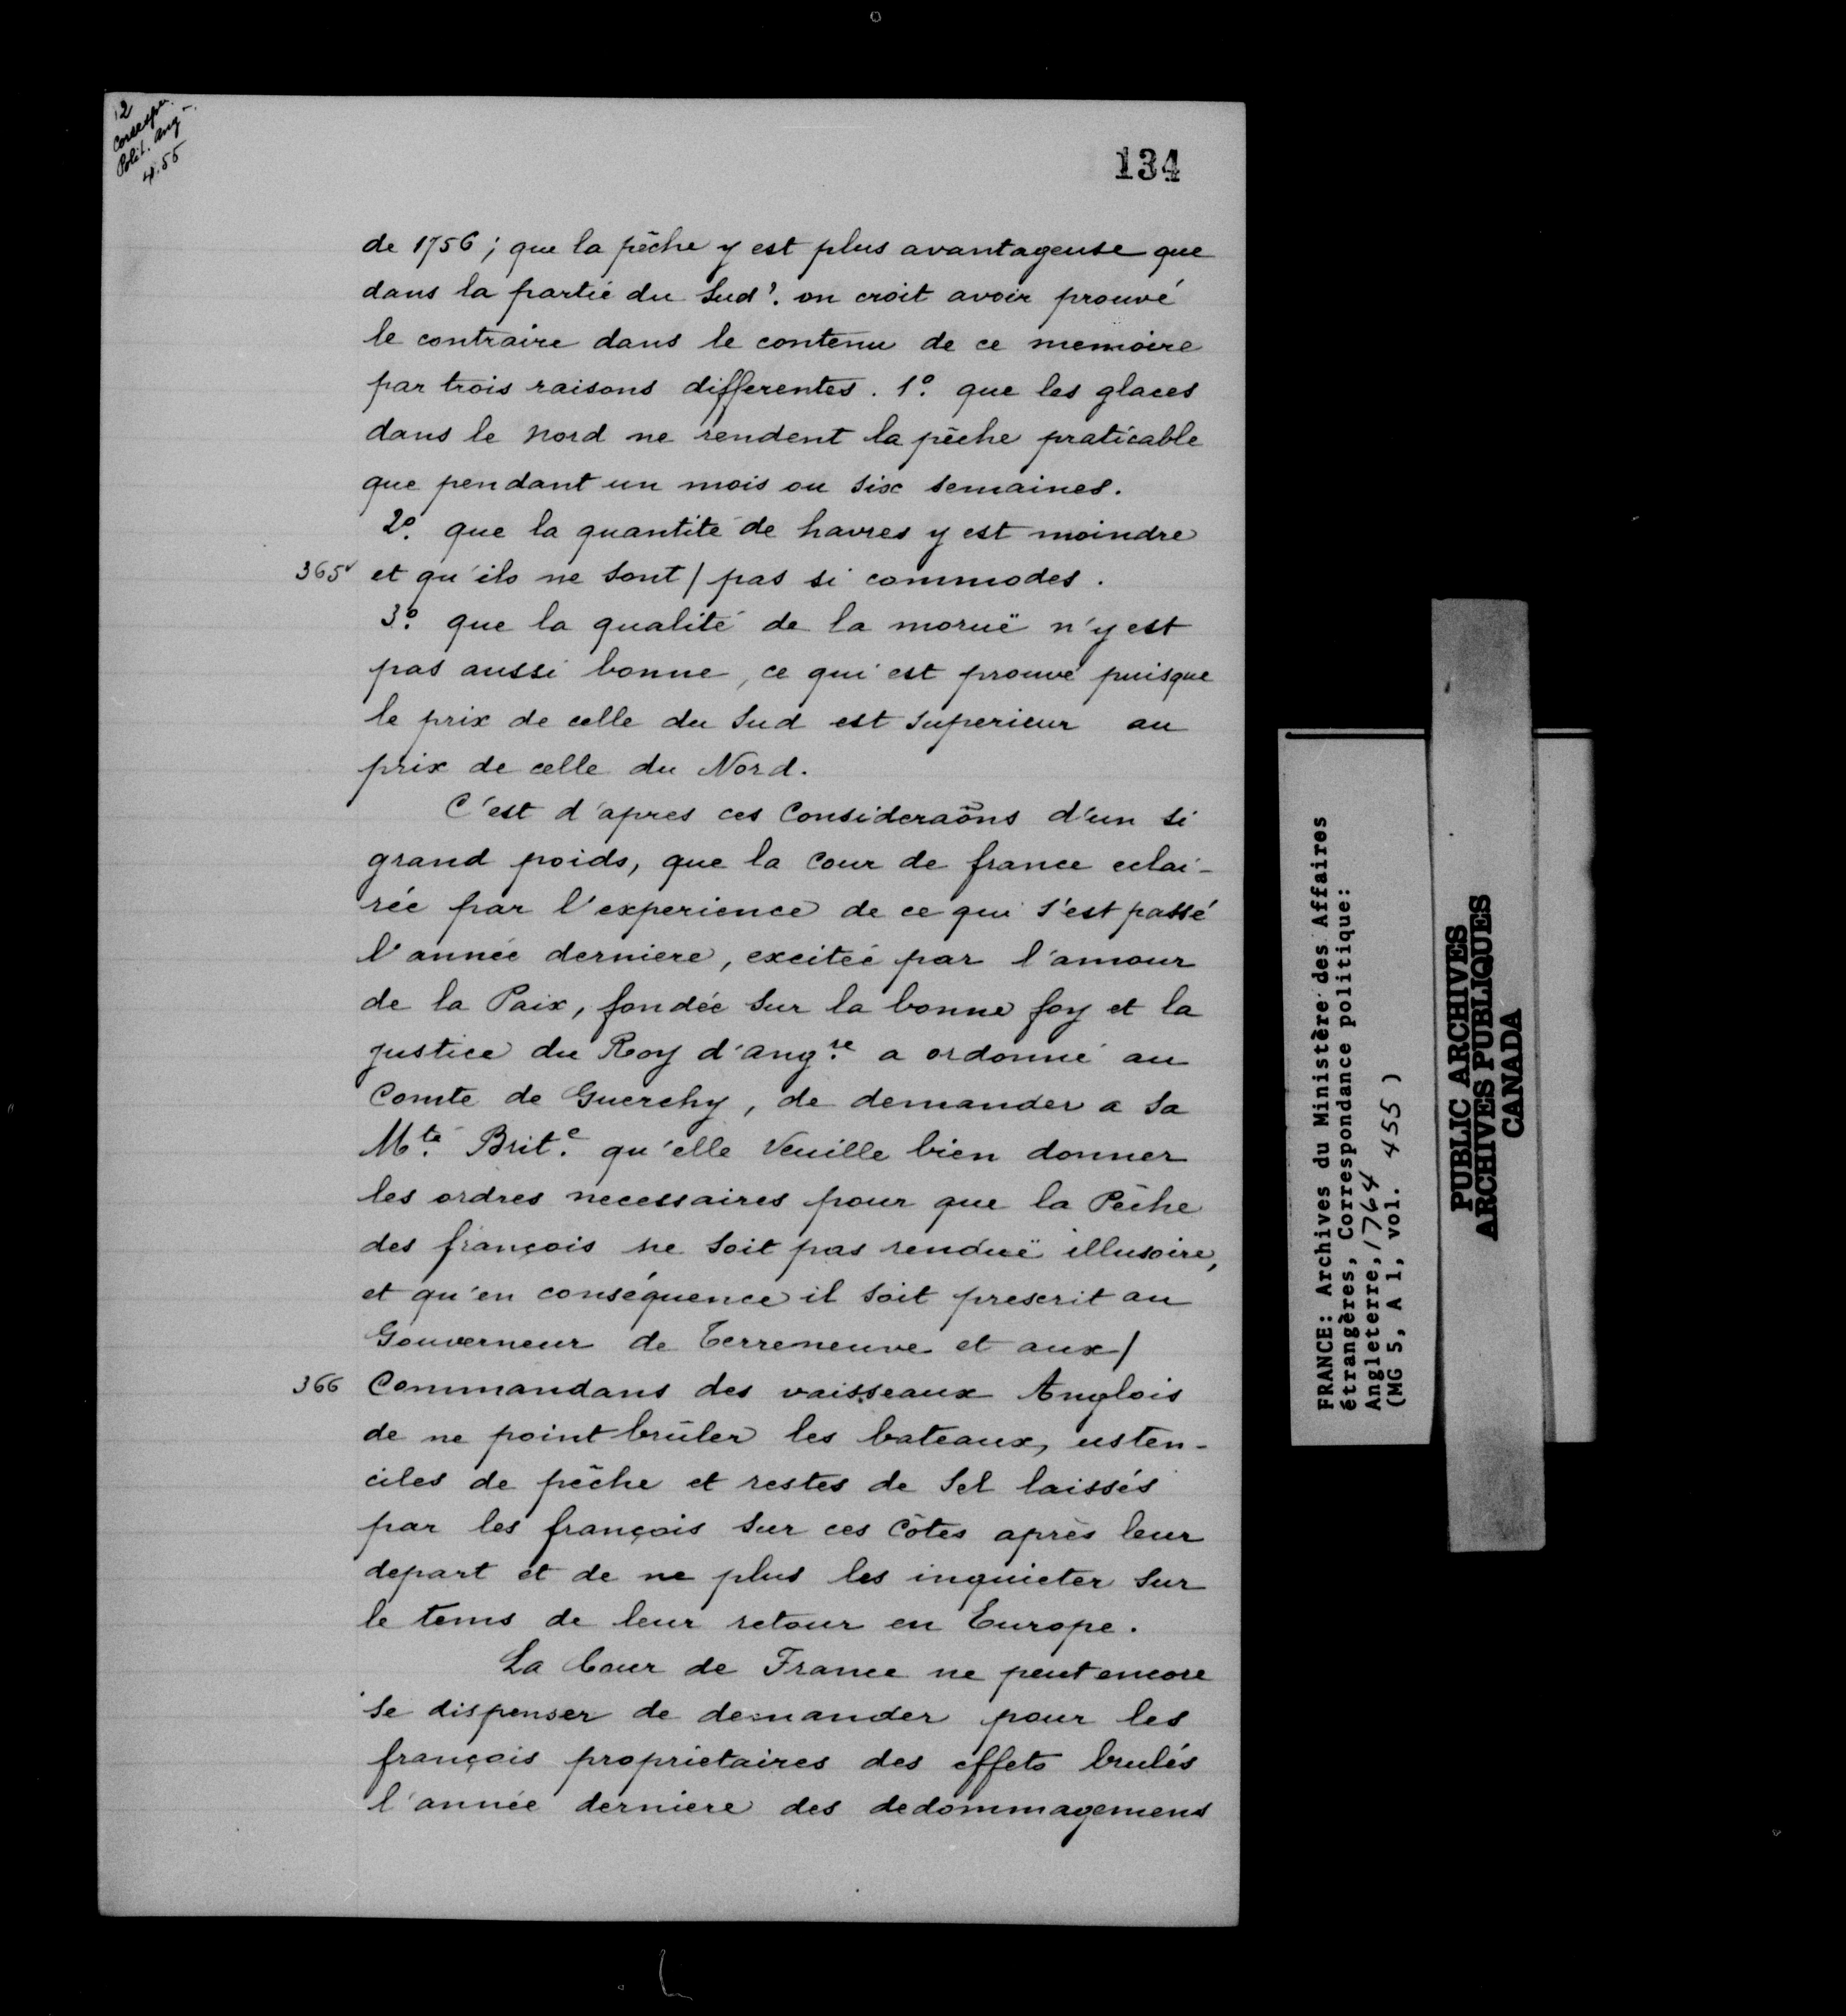 12
Correspce.
Polit. Ang –.
4.55
134
de 1756 ; que la pêche y est plus avantageuse que
dans la partie du Sud ?. on croit avoir prouvé
le contraire dans le contenu de ce memoire
par trois raisons differentes. 1º. que les glaces
dans le nord ne rendent la pêche praticable
que pendant un mois ou six semaines.
2º. que la quantité de havres y est moindre
365v et qu'ils ne sont / pas si commodes.
3º. que la qualité de la moruë n'y est
pas aussi bonne, ce qui est prouvé puisque
le prix de celle du Sud est superieur au
prix de celle du Nord.
C'est d'apres ces Consideraõns d'un si
grand poids, que la Cour de france eclai-
rée par l'experience de ce qui s'est passé
l'année derniere, excitée par l'amour
de la Paix, fondée sur la bonne foy et la
justice du Roy d'angre. a ordonné au
Comte de Guerchy, de demander a Sa
Mté. Brite. qu'elle Veuille bien donner
les ordres necessaires pour que la Pêche
des françois ne soit pas renduë illusoire,
et qu'en conséquence il soit prescrit au
Gouverneur de Terreneuve et aux /
366 Commandans des vaisseaux Anglois
de ne point brûler les bateaux, usten-
ciles de pêche et restes de Sel laissés
par les françois sur ces Côtes après leur
depart et de ne plus les inquieter sur
le tems de leur retour en Europe.
La Cour de France ne peut encore
se dispenser de demander pour les
françois proprietaires des effets brulés
l'année derniere des dedommagemens
FRANCE: Archives du Ministère des Affaires
étrangères, Correspondance politique:
Angleterre, 1764
(MG 5, A 1, vol. 455 )
PUBLIC ARCHIVES
ARCHIVES PUBLIQUES
CANADA